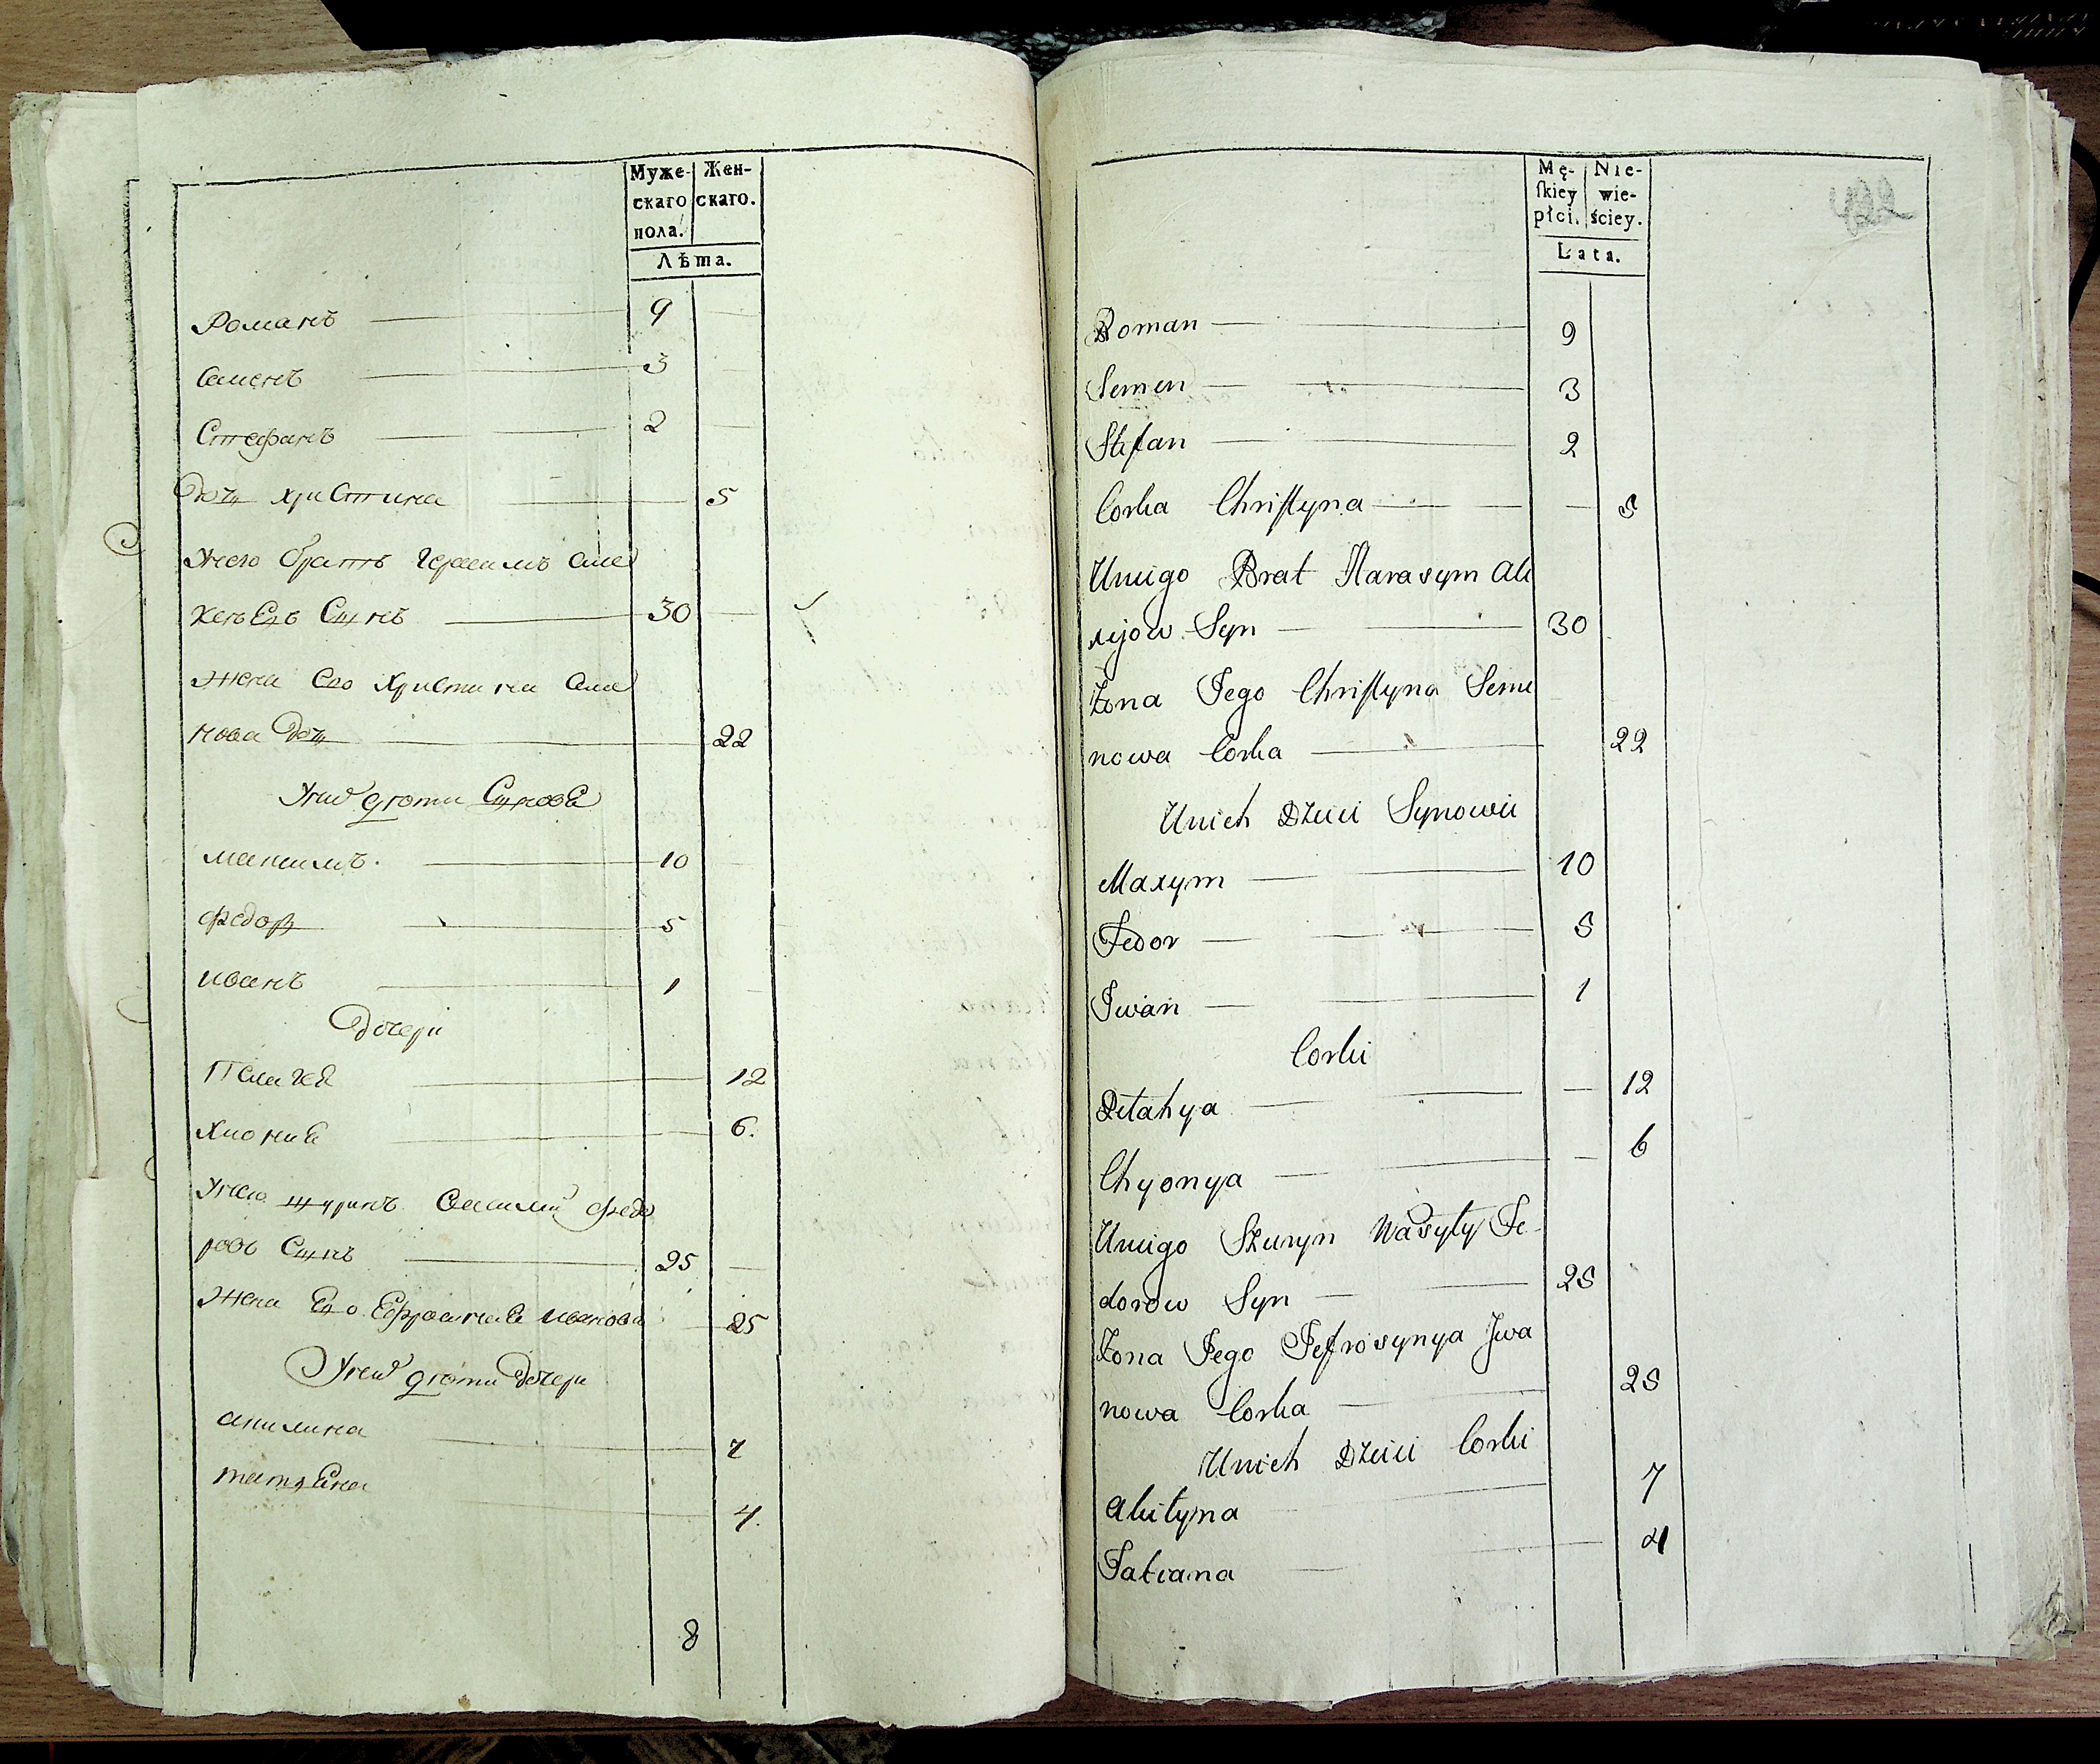 Муже- Жен-
скаго скаго.
пола.
Лѣта.
Романъ 9
Семенъ 3
Стефанъ 2
дочь христина 5
унего братъ Герасимъ Але
ксѣевъ Сынъ 30
жена Его христина Семе
нова дочь 22
уних дѣти Сыновья
максимъ. 10
федоръ 5
иванъ 1
дочери
Пелагея 12
Хиония 6.
унего шуринъ Василий федо
ровъ Сынъ 25
жена Его Ефросиния иванова 25
уних дѣти дочери
акилина 7
татьяна 4.
8
Mę- Nie-
ſkiey wie-
płci. ściey.
Lata.
422
Roman 9
Semen 3
Stefan 2
Corka Chriſtyna 5
Uniego Brat Harasym Ale
xijow Syn 30
Żona Jego Chriſtyna Seme
nowa Corka 22
Unich Dzieci Synowie
Maxym 10
Fedor 5
Iwan 1
Corki
Pelahya 12
Chyonya 6
Uniego Szuryn Wasyly Fe-
dorow Syn 25
Żona Jego Jefrosynya Iwa
nowa Corka 25
Unich Dzieci Corki
Akilyna 7
Tatiana 4